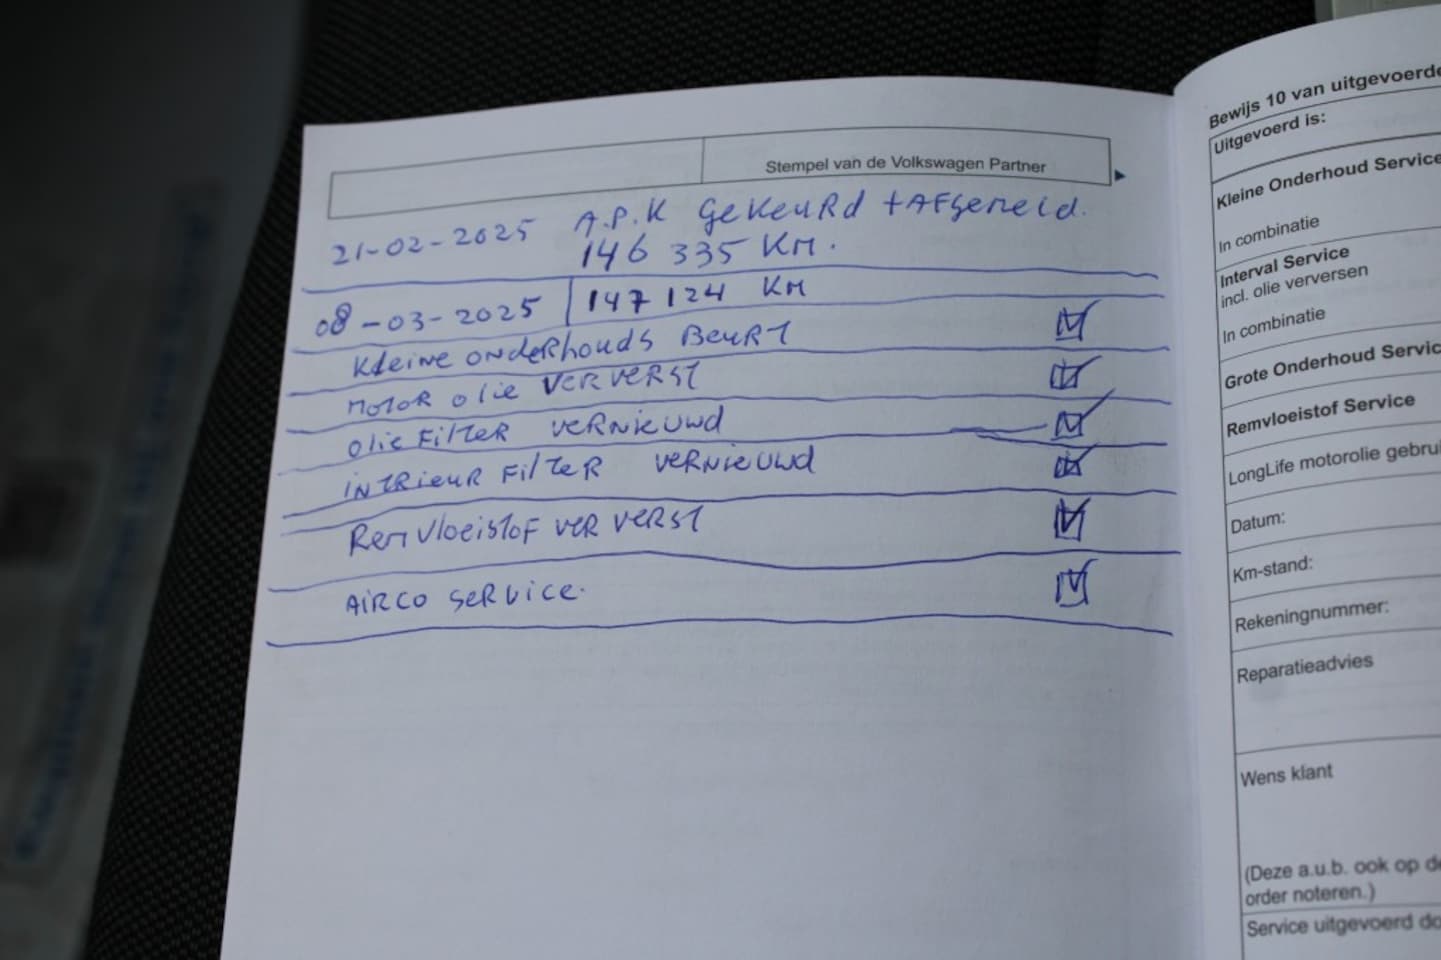 Stempel van de Volkswagen Partner
21-02-2025 A.P.K GeKeuRd + AFgemeld.
146 335 KM.
08-03-2025 147 124 KM
Kleine ondeRhouds BeuRT
MotoR olie VERVERST
olie FilTeR VeRNieuwd
iNTRieuR FilTeR VeRNieuwd
RemVloeistoF VeR VeRST
AiRCO SeRvice.
Bewijs 10 van uitgevoerde
Uitgevoerd is:
Kleine Onderhoud Service
In combinatie
Interval Service
incl. olie verversen
In combinatie
Grote Onderhoud Servic
Remvloeistof Service
LongLife motorolie gebrui
Datum:
Km-stand:
Rekeningnummer:
Reparatieadvies
Wens klant
(Deze a.u.b. ook op de
order noteren.)
Service uitgevoerd do